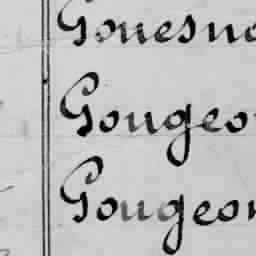 Gouesno
Gougeo
Gougeon